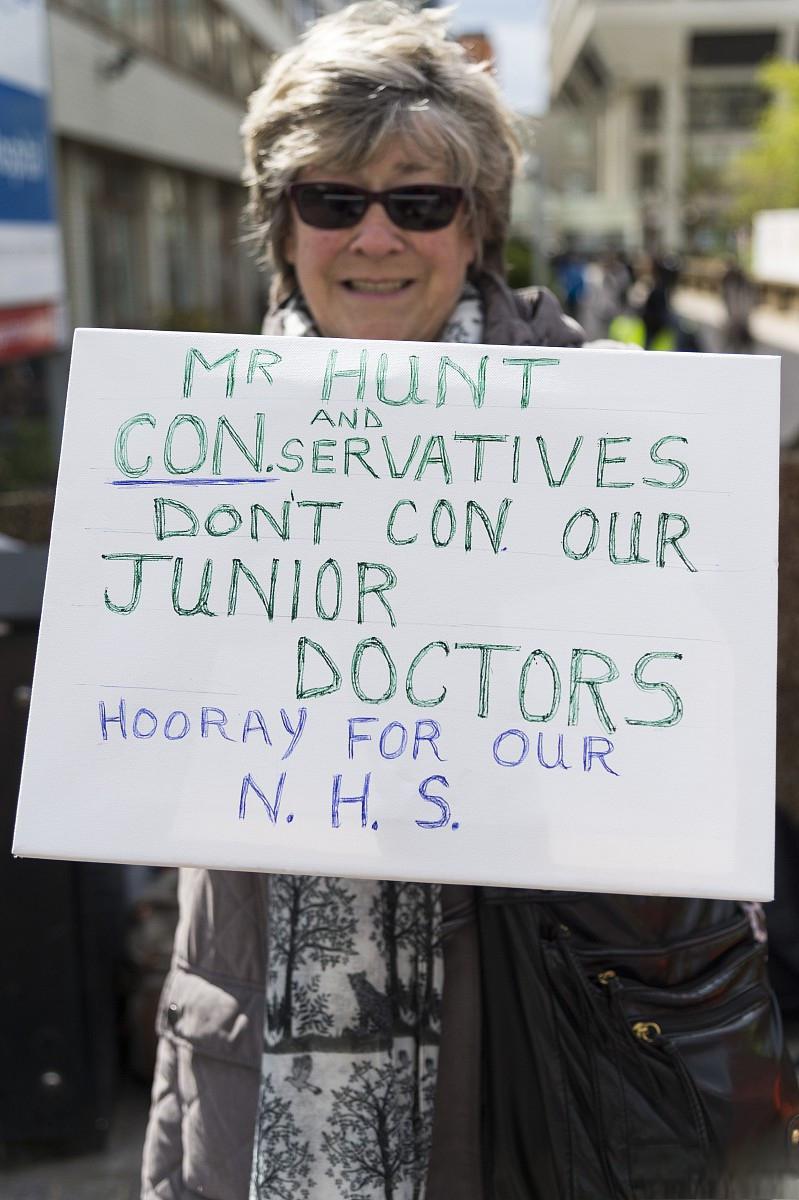 MR HUNT
AND
CON.SERVATIVES
DON'T CON. OUR
JUNIOR
DOCTORS
HOORAY FOR OUR
N. H. S.